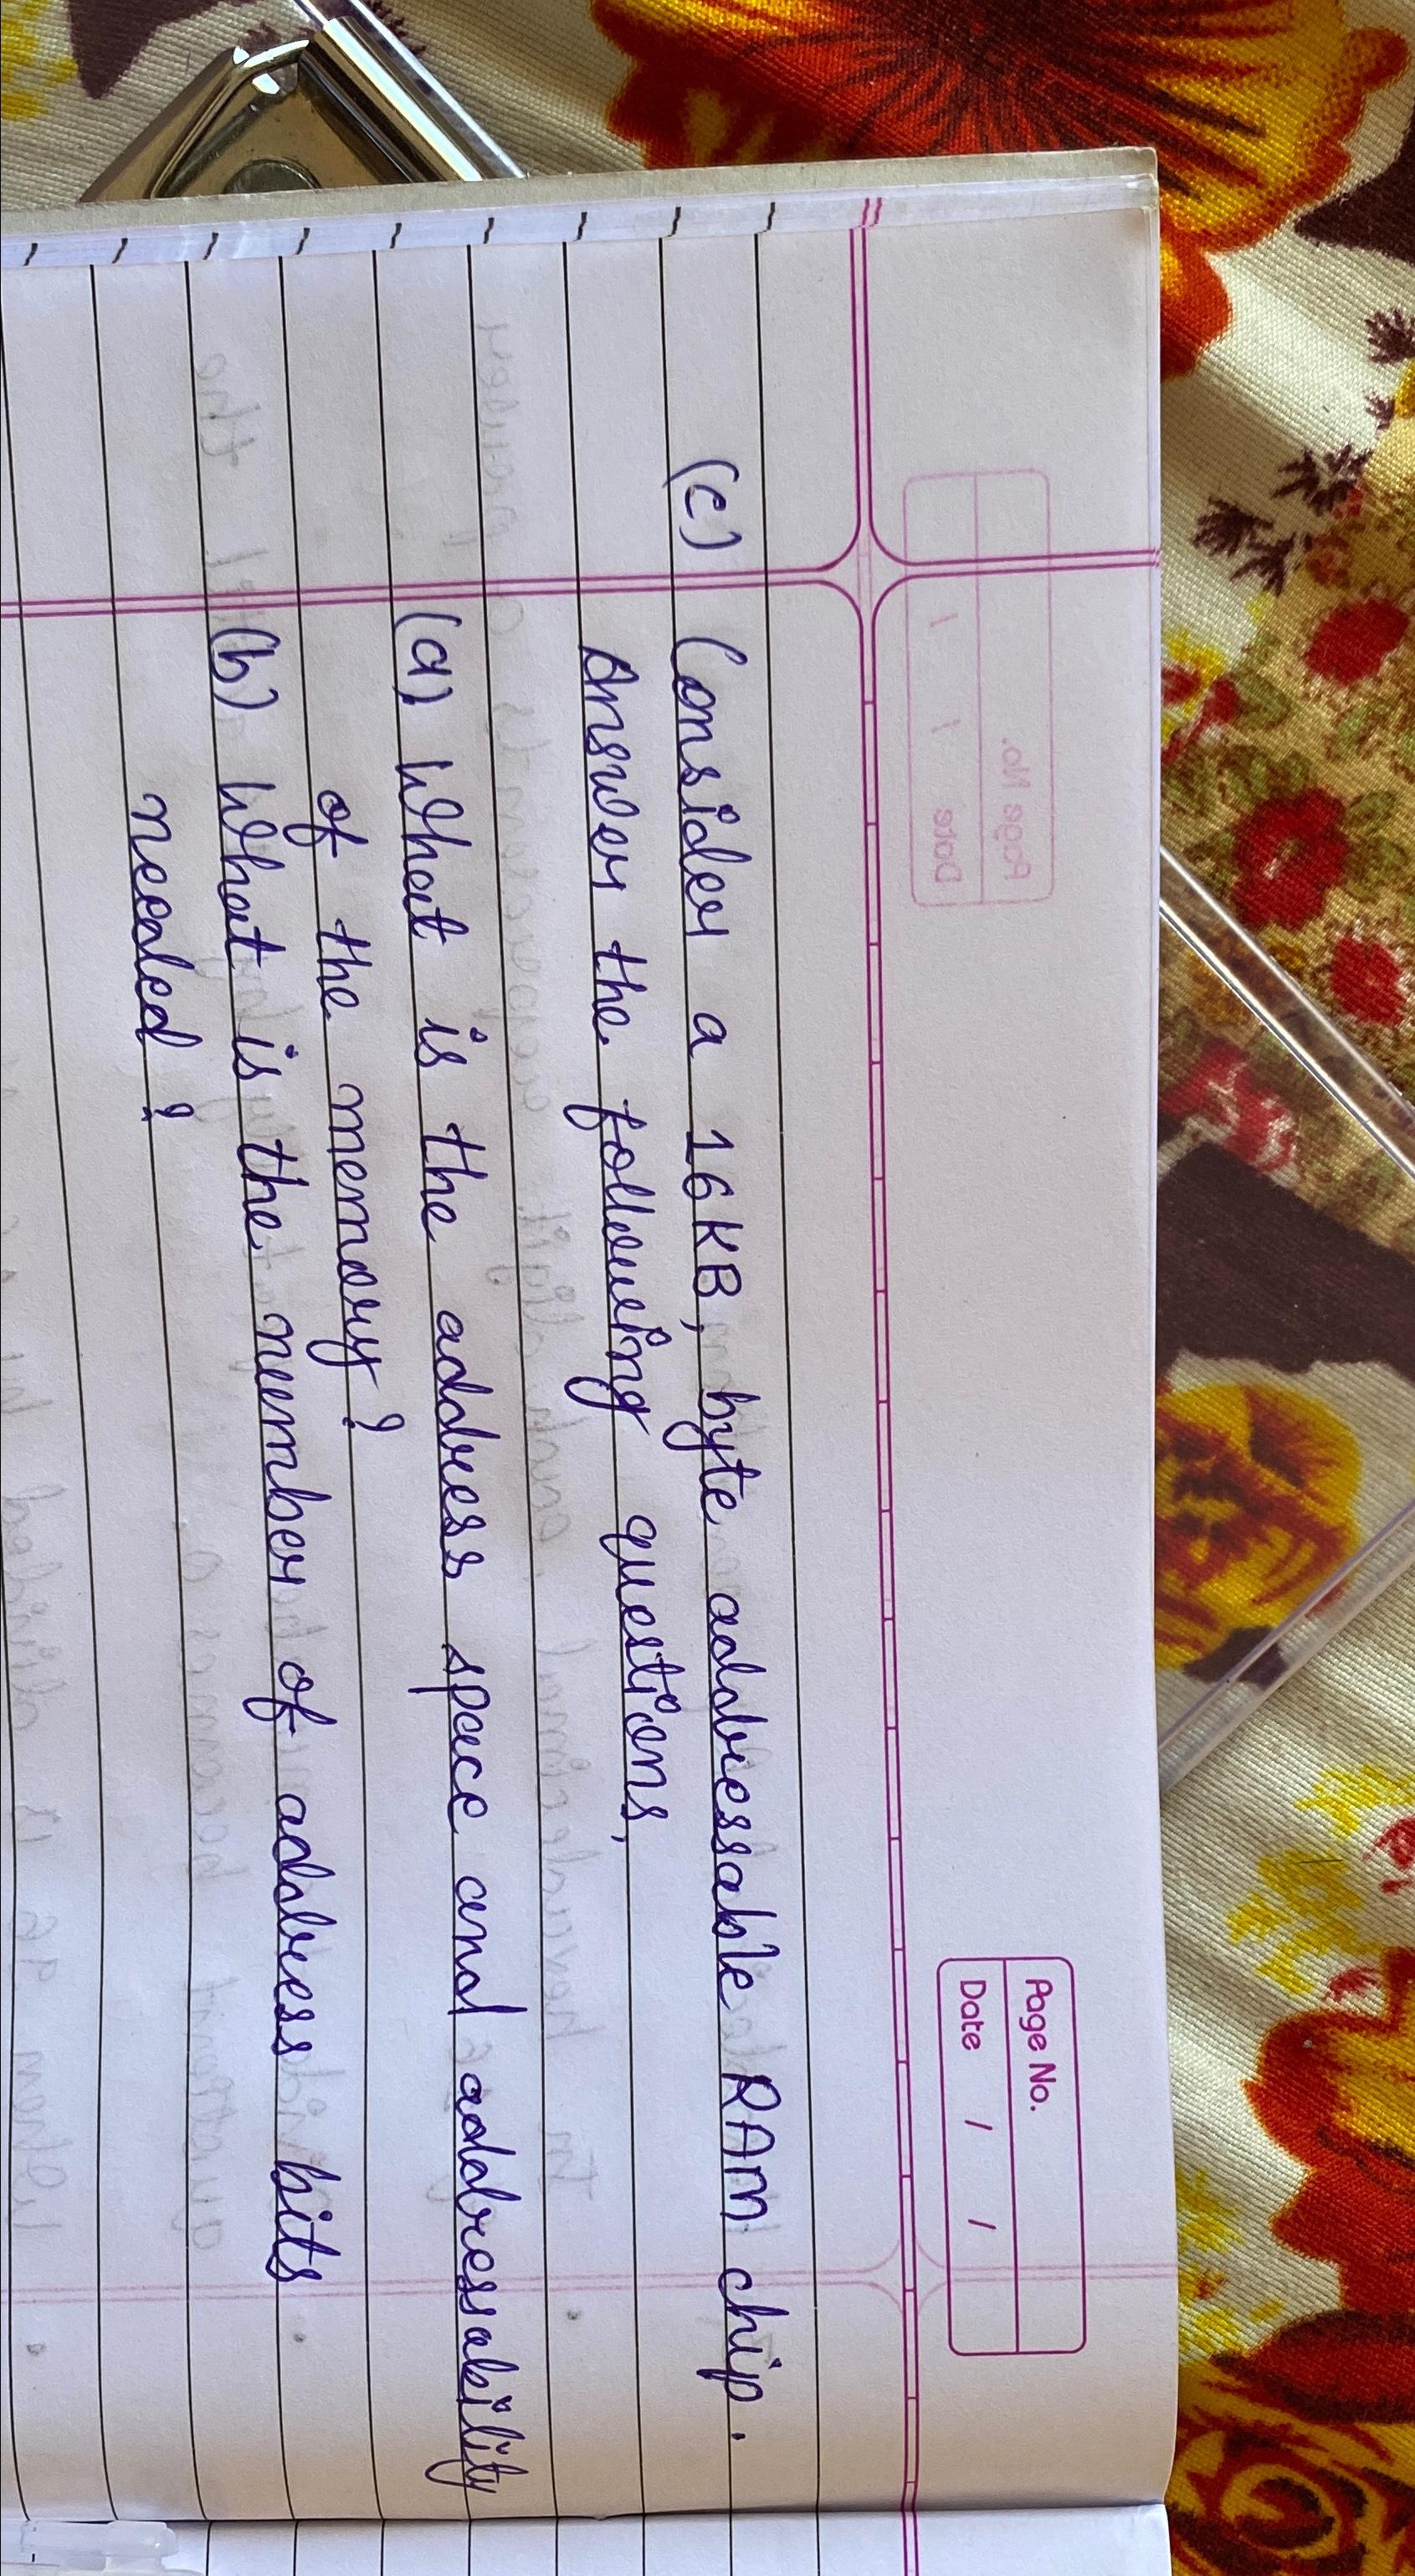 Page No.
Date / /
(c) Consider a 16KB, byte addressable RAM chip.
Answer the following questions,
(a) What is the address space and addressability
of the memory?
(b) What is the number of address bits
needed?